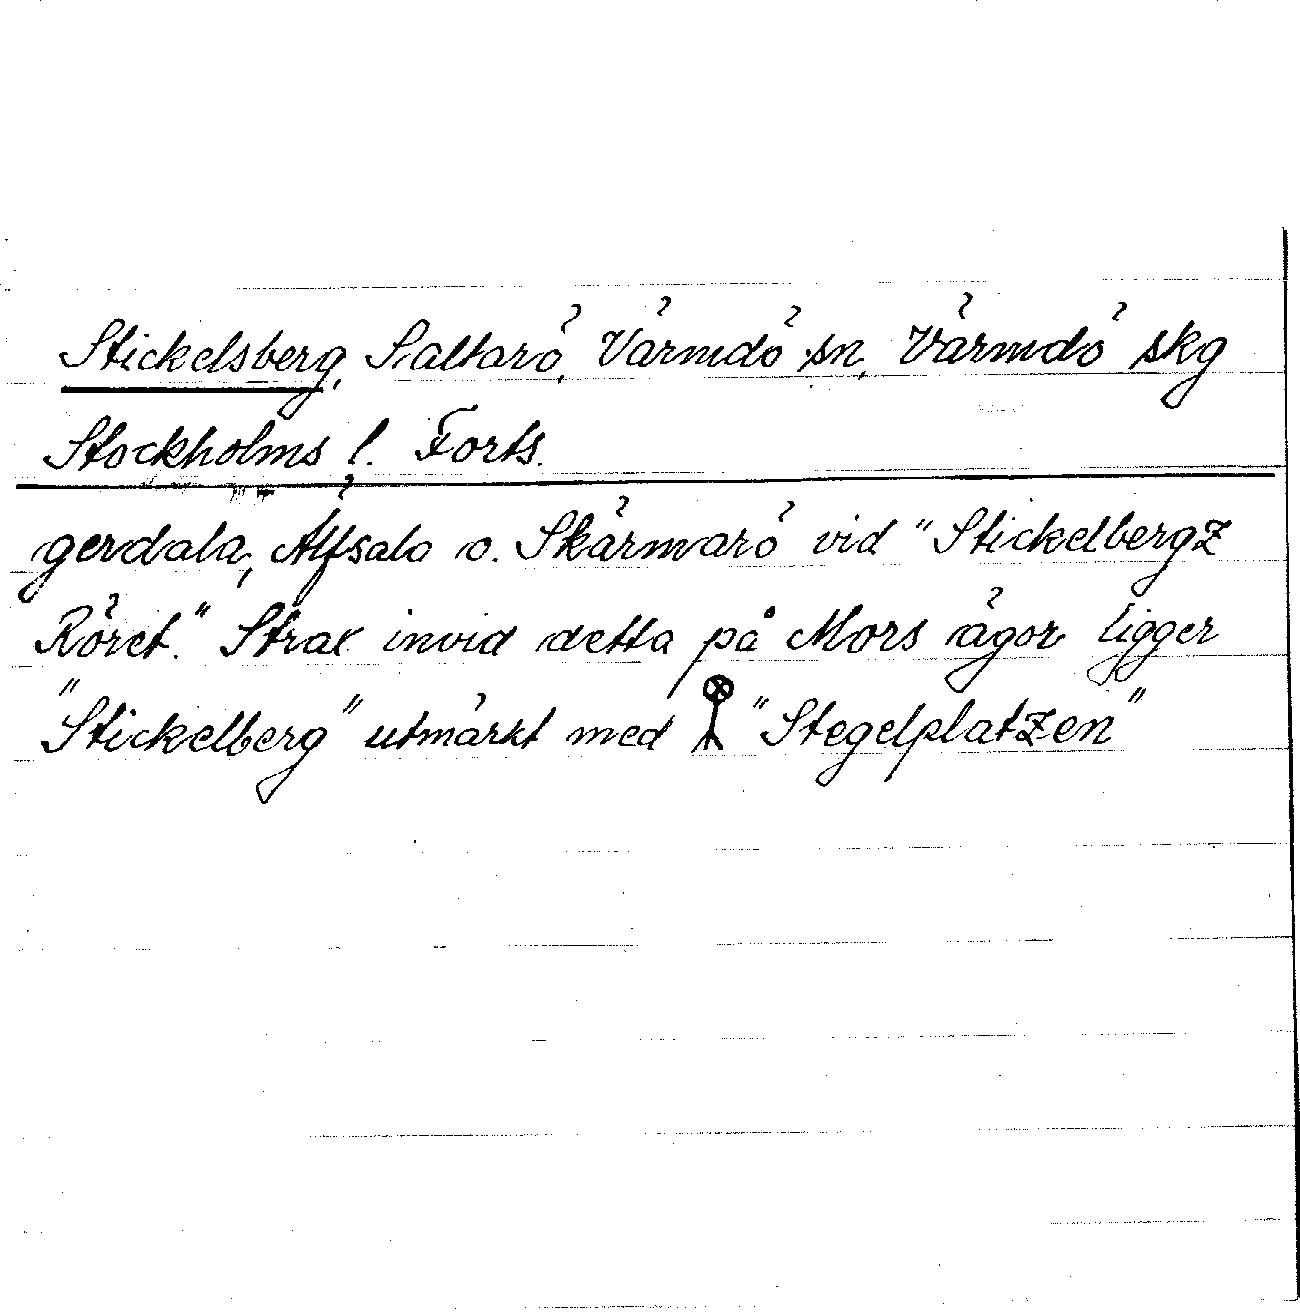 Stickelsberg, Saltarö, Värmdö sn, Värmdö skg
Stockholms l. Forts.
gerdala, Älfsala o. Skärmarö vid "Stickelbergz
Röret." Strax invid detta på Mörs ägor ligger
"Stickelberg" utmärkt med "Stegelplatzen"